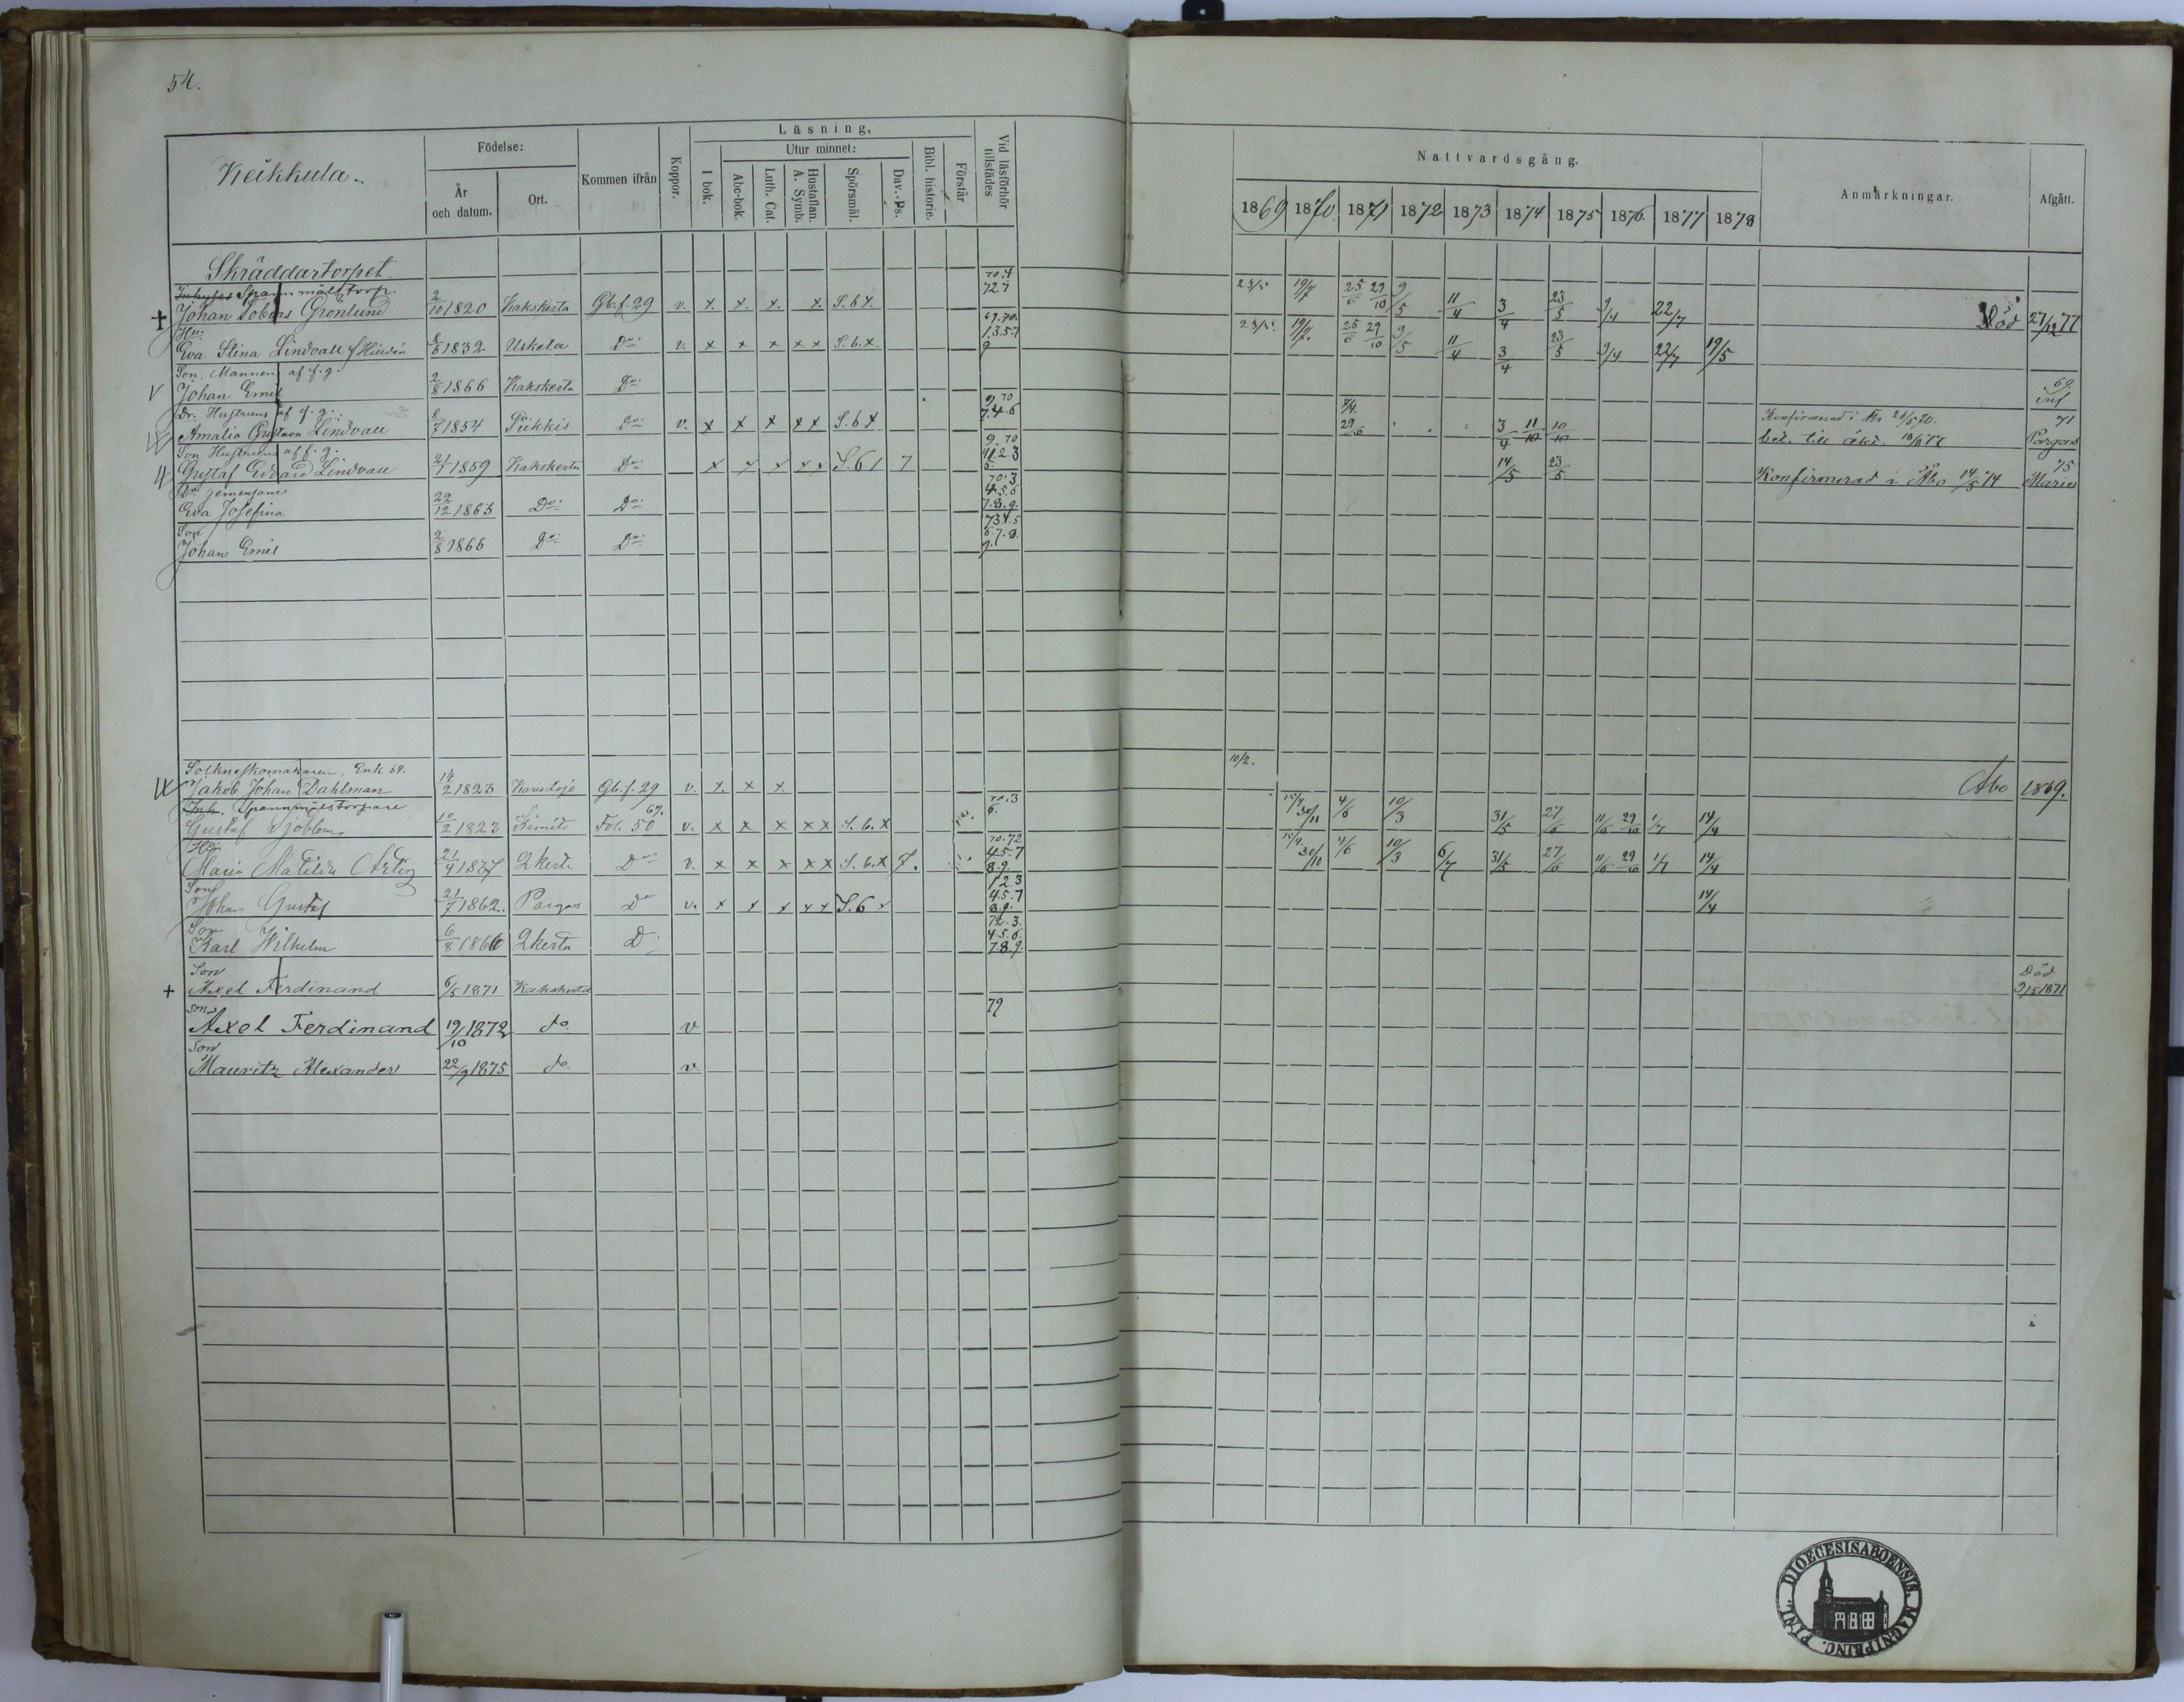 54.
Keikkula.
Födelse:
År och datum.
Ort.
Kommen ifrån
Koppor.
Läsning,
I bok.
Utur minnet:
Abc-bok.
Luth. Cat.
Hustaflan. A. Symb.
Spörsmål.
Dav. Ps.
Bibl. historie.
Förstår
Vid läsförhör tillstädes
Nattvardsgång.
1869 1870 1871 1872 1873 1874 1875 1876 1877 1878
Anmärkningar.
Afgått.
Skräddartorpet.
Spannmålstorp.
Johan Grönlund 2/10 1820 Kakskerta Gb.f. 29 v. x x. x. x S. 6 x. 727 23/5 19/7 25/6 29/10 9/5 11/4 3/4 23/5 9/4 22/7 Död 27/12 77
Hu:
Eva Stina Lindvall 1832 Uskela Do v. x x x x x S. 6. x. 69.70. 1.3.5.7 9 23/5 19/7. 25/6 29/10 9/5 11/4 3/4 23/5 9/4 22/7 19/5
Son. Mannens af f. g.
Johan Emil 2/8 1866 Kakskerta Do 69
Dr. Hustruns af f. g.
Amalia Gustava Lindvall 8/7 1854 Piikkis Do v. x x x x x S. 6 x 9.70 7.4.6 3/4 11/10 10/10 Konfirmerad i Åbo 70. 71
Pargas
Son Hustruns af f. g.
Gustaf Edvard Lindvall 1859 Kakskerta Do x x x x x S. 6 1 7 9.70 5. 14/5 23/5 Konfirmerad i Åbo 14/5 74 75 Marie
Dr gemensam
Eva Josefina 22/12 1863 Do Do 70.3 4.5.6 7.8.9.
Son
Johan Emil 2/8 1866 Do Do 73.4.5 6.7.8. 9.
Sockneskomakaren, Enk 64.
Jakob Johan Dahlman 14/2 1823 Karislojo Gb.f. 29 v. x. x x. 10/2. Åbo 1869.
Inh. Spannmålstorpare
Gustaf Sjöblom 10/2 1823 Kimito Fol. 50 69. v. x x x x x S. 6. x 70.3 6. 30/11 4/6 10/3 31/5 27/6 11/6 29/10 1/7 14/4
Hu
Maria Matilda 21/9 1837 Do v. x x x x x S. 6. x 7. 70.72 4.5.7 8.9. 30/11 4/6 10/3 6/7 31/5 27/6 11/6 29/10 1/7 14/4
Son
Johan Gustaf 21/7 1862. Pargas Do v. x x x x x S. 6 x 1.2.3 4.5.7 8.9. 14/4
Son
Karl Wilhelm 6/8 1866 D 72.3. 4.5.6. 7.8.9.
Son
Axel Ferdinand 6/5 1871 Kakskerta Död 9/5 1871
Son
Axel Ferdinand 19/10 1872 do v 79
Son
Mauritz Alexander 22/9 1875 do v
DIOECESIS ABOENSIS. MAGNI PRINC. FINL.